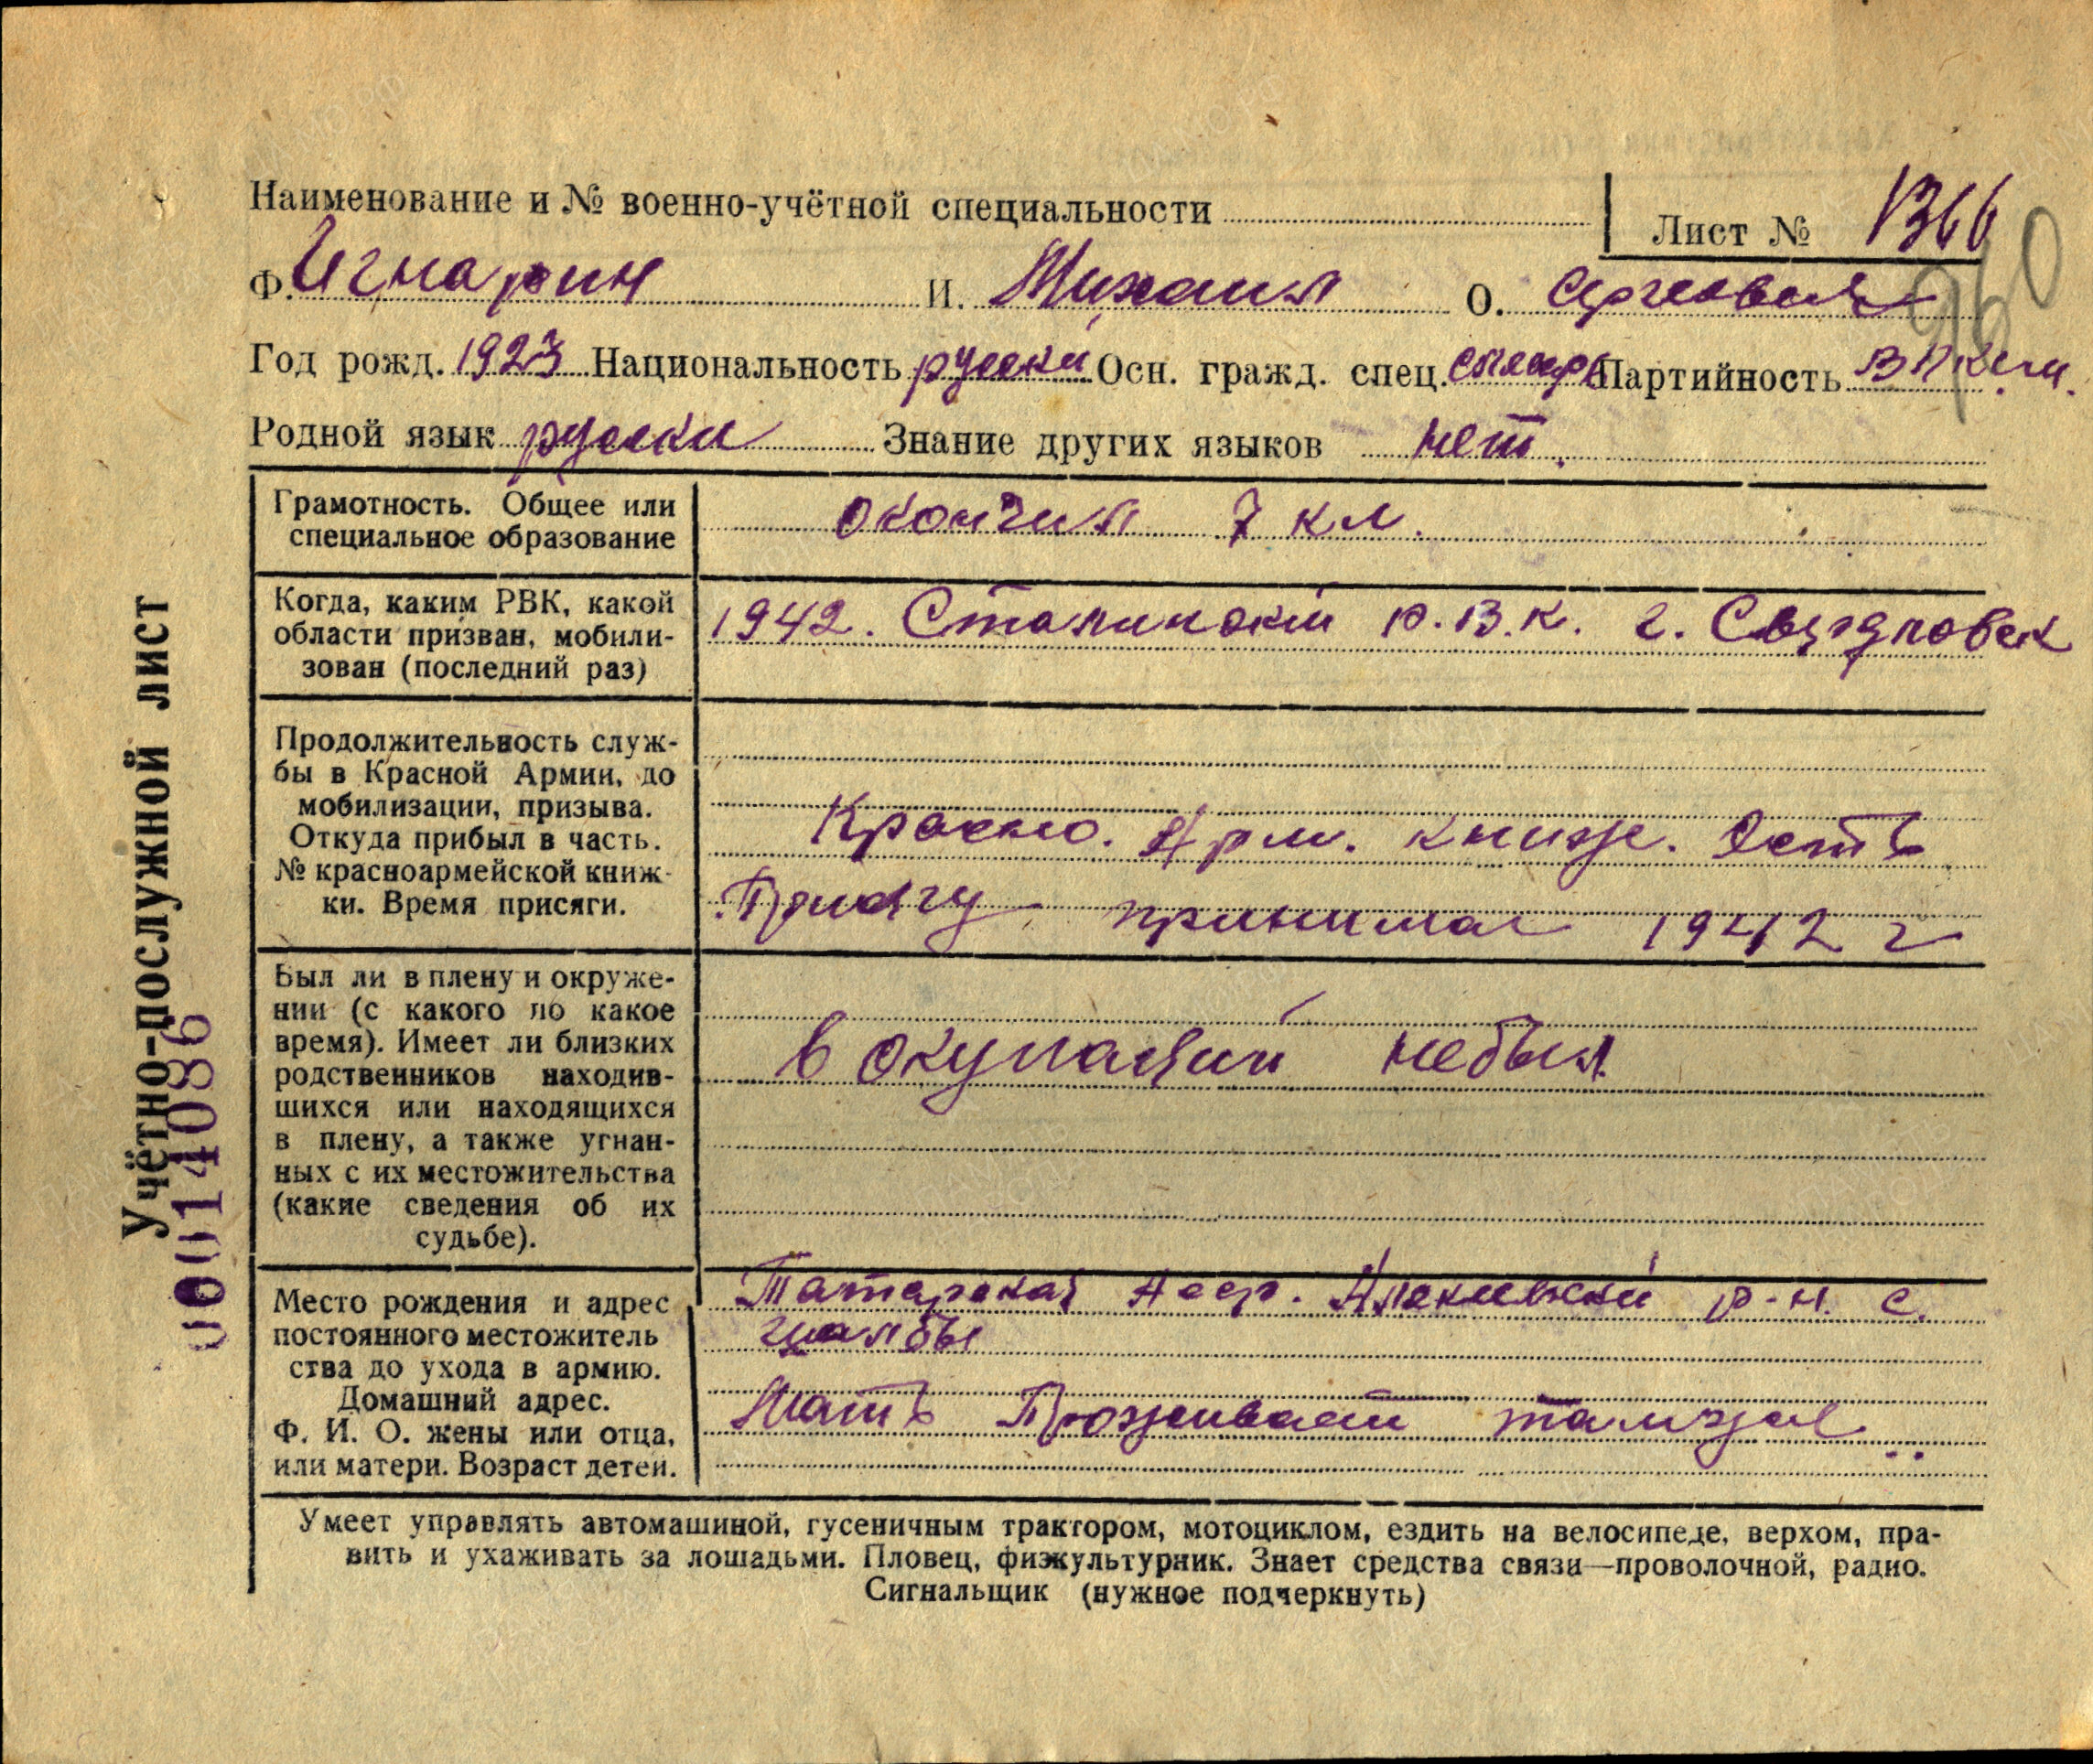 Наименование и № военно-учётной специальности
Лист № 1366
960
Ф. Игнарин И. Михаил О. Сергеевич
Год рожд. 1923 Национальность русски Осн. гражд. спец. столяр Партийность ВЛКСМ.
Родной язык русски Знание других языков нет.
Грамотность. Общее или
специальное образование
окончил 7 кл.
Когда, каким РВК, какой
области призван, мобили-
зован (последний раз)
1942. Сталинский р.в.к. г. Свердловск
Продолжительность служ-
бы в Красной Армии, до
мобилизации, призыва.
Откуда прибыл в часть.
№ красноармейской книж-
ки. Время присяги.
Красно. Арм. книж. есть
Присягу принимал 1942 г
Был ли в плену и окруже-
нии (с какого по какое
время). Имеет ли близких
родственников находив-
шихся или находящихся
в плену, а также угнан-
ных с их местожительства
(какие сведения об их
судьбе).
в окупаций небыл
Место рождения и адрес
постоянного местожитель
ства до ухода в армию.
Домашний адрес.
Ф. И. О. жены или отца,
или матери. Возраст детей.
Татарская Асср. р-н. с.
Мать Проживает тамже
Умеет управлять автомашиной, гусеничным трактором, мотоциклом, ездить на велосипеде, верхом, пра-
вить и ухаживать за лошадьми. Пловец, физкультурник. Знает средства связи—проволочной, радио.
Сигнальщик (нужное подчеркнуть)
Учётно-послужной лист
0014086